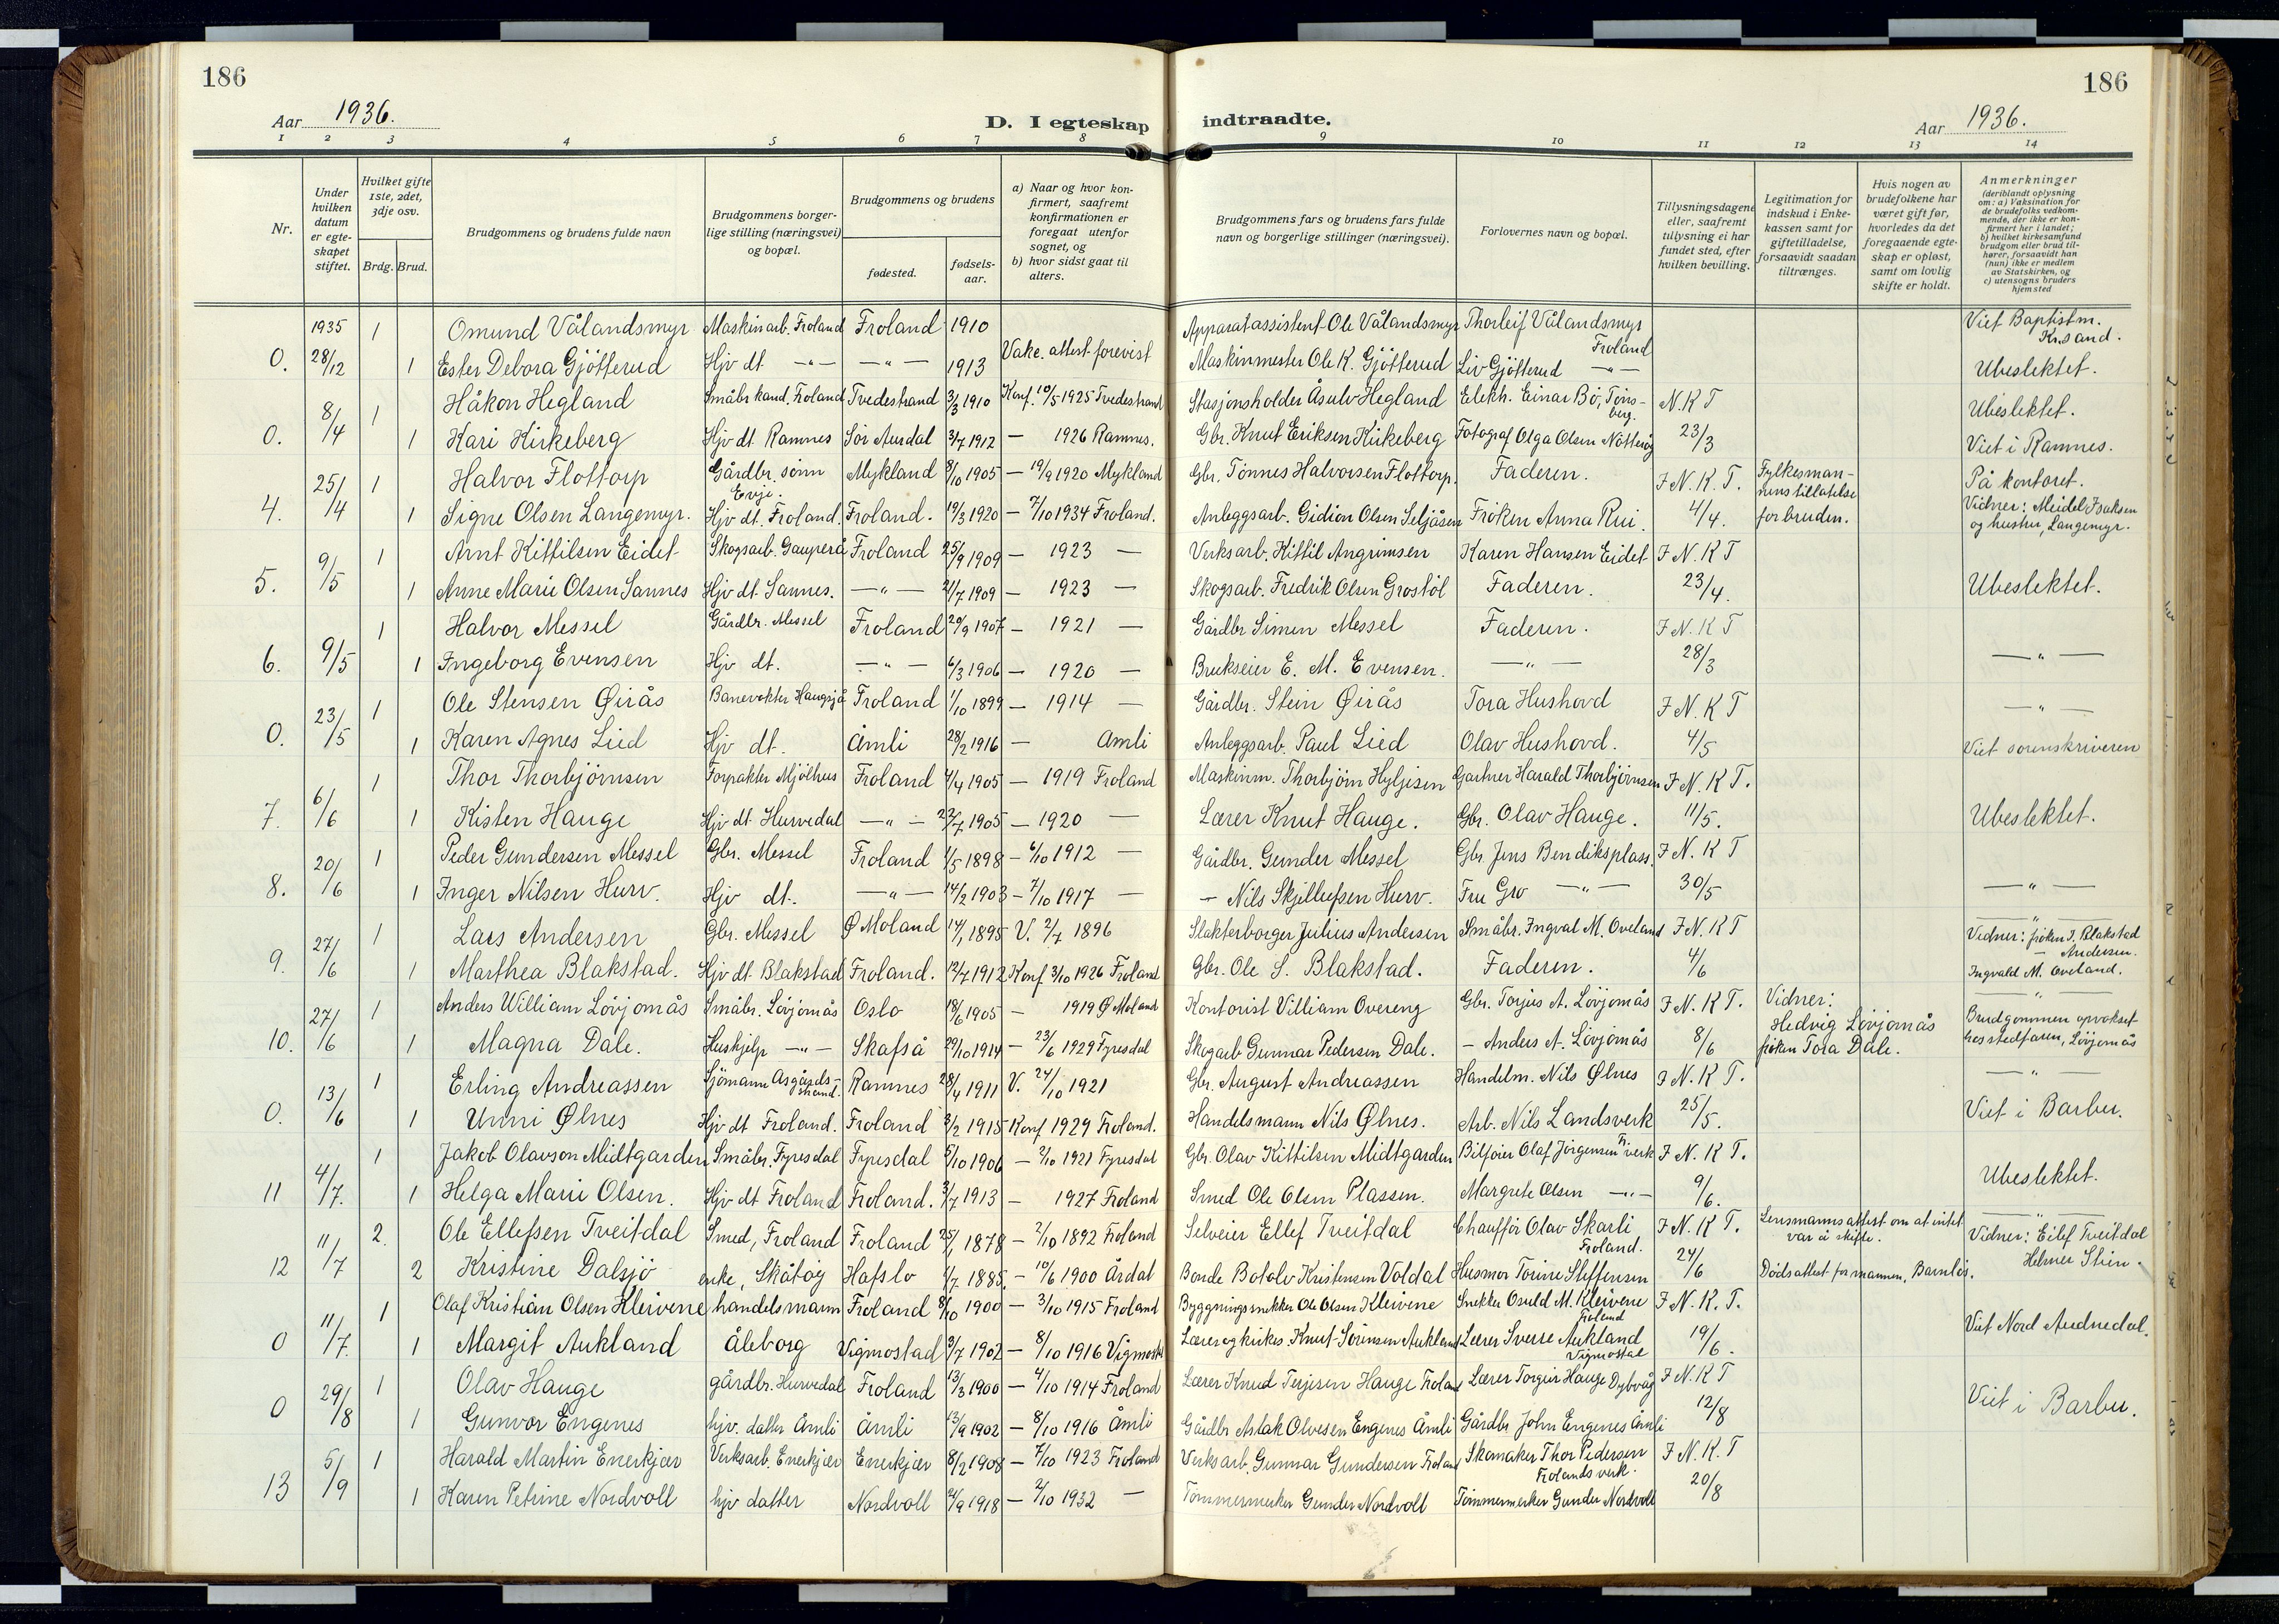 186
Aar 1936.
D. I egteskap
indtraadte.
186
Aar 1936.
1 2 3 4 5 6 7 8 9 10 11 12 13 14
Nr.
Under hvilken datum er egteskapet stiftet.
Hvilket gifte 1ste, 2det, 3dje osv.
Brdg. Brud.
Brudgommens og brudens fulde navn
Brudgommens borgerlige stilling (næringsvei) og bopæl.
Brudgommens og brudens
fødested.
fødselsaar.
a) Naar og hvor konfirmert, saafremt konfirmationen er foregaat utenfor sognet, og
b) hvor sidst gaat til alters.
Brudgommens fars og brudens fars fulde navn og borgerlige stillinger (næringsvei).
Forlovernes navn og bopæl.
Tillysningsdagene eller, saafremt tillysning ei har fundet sted, efter hvilken bevilling.
Legitimation for indskud i Enkekassen samt for giftetilladelse, forsaavidt saadan tiltrænges.
Hvis nogen av brudefolkene har været gift før, hvorledes da det foregaaende egteskap er opløst, samt om lovlig skifte er holdt.
Anmerkninger
(deriblandt oplysning om: a) Vaksination for de brudefolks vedkommende, der ikke er konfirmert her i landet; b) hvilket kirkesamfund brudgom eller brud tilhører, forsaavidt han (hun) ikke er medlem av Statskirken, og c) utensogns bruders hjemsted
1935 1 Omund Vålandsmyr Maskinarb. Froland Froland 1910 Apparatassistent Ole Vålandsmyr Thorleif Vålandsmyr Froland Viet Baptistm. Krsand.
0. 28/12 1 Ester Debora Gjötterud Hjv dt —"— —"— 1913 Vake. attest forevist Maskinmester Ole K. Gjötterud Liv Gjötterud —"— Ubeslektet.
8/4 1 Håkon Hegland Småbr kand. Froland Tvedestrand 3/3 1910 Konf. 10/5 1925 Tvedestrand Stasjonsholder Åsulv Hegland Elekh. Einar Bö, Tönsberg. N.K T Ubeslektet.
0. 1 Kari Kirkeberg Hjv dt. Ramnes Sör Aurdal 3/7 1912 — 1926 Ramnes. Gbr. Knut Eriksen Kirkeberg Fotograf Olga Olsen Nötteröy 23/3 Viet i Ramnes.
25/4 1 Halvor Flottorp Gårdbr. sönn Evje. Mykland 8/10 1905 — 19/9 1920 Mykland Gbr. Tönnes Halvorsen Flottorp. Faderen. J N. K. T. Fylkesmannens tillatelse På kontoret.
4. 1 Signe Olsen Langemyr. Hjv dt. Froland. Froland. 19/3 1920 — 7/10 1934 Froland. Anleggsarb. Gidion Olsen Seljåsen Fröken Anna Rui. 4/4. for bruden. Vidner: Meidel Isaksen og hustru, Langemyr.
9/5 1 Arnt Kittilsen Eidet Skogsarb. Gauperå Froland 25/9 1909 — 1923 — Verksarb. Kittil Angrimsen Karen Hansen Eidet J N. K T
5. 1 Anne Marie Olsen Sannes Hjv dt. Sannes. —"— 21/7 1909 — 1923 — Skogsarb. Fredrik Olsen Grostöl Faderen. 23/4. Ubeslektet.
1 Halvor Messel Gårdbr. Messel Froland 20/9 1907 — 1921 — Gårdbr Simen Messel Faderen. J N. K T
6. 9/5 1 Ingeborg Evensen Hjv dt. —"— 6/3 1906 — 1920 — Brukseier E. M. Evensen. —"— 28/3 —"—
23/5 1 Ole Stensen Øirås Banevokter Haugsjå Froland 1/10 1899 — 1914 — Gårdbr. Stein Øirås Tora Hushovd J N. K T —"—
0. 1 Karen Agnes Lied Hjv dt. Åmli 28/2 1916 — Åmli Anleggsarb. Paul Lied Olav Hushovd. 4/5 Viet sorenskriveren
1 Thor Thorbjörnsen Forpakter Mjölhus Froland 4/4 1905 — 1919 Froland Maskinm. Thorbjörn Hyljisen Gartner Harald Thorbjörnsen J N. K T.
7. 6/6 1 Kisten Hauge Hjv dt. Hurvedal —"— 22/7 1905 — 1920 — Lærer Knut Hauge. Gbr. Olav Hauge. 11/5. Ubeslektet.
20/6 1 Peder Gundersen Messel Gbr. Messel Froland 1/5 1898 — 6/10 1912 — Gårdbr. Gunder Messel Gbr. Jens Bendiksplass. J N. K T
8. 1 Inger Nilsen Hurv. Hjv dt. —"— 14/2 1903 — 7/10 1917 — — Nils Skjellefsen Hurv. Fru Gro —"— 30/5 —"—
27/6 1 Lars Andersen Gbr. Messel Ø Moland 14/1 1895 V. 2/7 1896 Slakterborger Julius Andersen Småbr. Ingval M. Oveland J N. K T —"— Vidner: fröken I. Blakstad
9. 1 Marthea Blakstad. Hjv dt. Blakstad Froland. 12/7 1912 Konf 3/10 1926 Froland Gbr. Ole S. Blakstad. Faderen. 4/6 — Andersen. Ingvald M. Oveland.
27/6 1 Anders William Lövjomås Småbr. Lövjomås Oslo 18/6 1905 — 1919 Ø Moland Kontorist Villiam Overeng Gbr. Torjus A. Lövjomås J N. K T. Vidner: Hedvig Lövjomås —"— Brudgommen opvokset
10. 1 Magna Dale. Huskjelp —"— Skafså 29/10 1914 — 23/6 1929 Fyresdal Skogarb Gunnar Pedersen Dale. — Anders A. Lövjomås 8/6 fröken Tora Dale. hos stedfaren, Lövjomås
13/6 1 Erling Andreassen Sjömann Åsgårdsstrand. Ramnes 28/4 1911 V. 24/10 1921 Gbr. August Andreassen Handelm. Nils Ølnes J N. K T. —"—
0. 1 Unni Ølnes Hjv dt Froland. Froland 3/2 1915 Konf 1929 Froland. Handelsmann Nils Ølnes. Arb. Nils Landsverk 25/5. Viet i Barbu.
4/7. 1 Jakob Olavson Midtgarden Småbr. Fyresdal Fyresdal 5/10 1906 — 2/10 1921 Fyresdal Gbr. Olav Kittilsen Midtgarden Bilförer Olaf Jörgensen Fr. verk J N. K T.
11 1 Helga Marie Olsen. Hjv dt Froland Froland. 3/7 1913 — 1927 Froland Smed Ole Olsen Plassen. Margrete Olsen —"— 9/6. Ubeslektet.
11/7 2. Ole Ellefsen Tveitdal Smed, Froland Froland 25/1 1878 — 2/10 1892 Froland Selveier Ellef Tveitdal Chaufför Olav Skarli Froland. J N. K T. Lensmannsattest om at intet var å skifte. —"— Vidner: Eilef Tveitdal
12 2 Kristine Dalsjö enke, Skåtöy Hafslo 4/7 1885. — 10/6 1900 Årdal Bonde Botolv Kristensen Voldal Husmor Torine Steffensen 24/6 Dödsattest for mannen, Barnlös. Helmer Stien.
11/7. 1 Olaf Kristian Olsen Kleivene handelsmann Froland 8/10 1900 — 3/10 1915 Froland Byggningssnekker Ole Olsen Kleivene Snekker Osuld M. Kleivene Froland J N. K. T.
0 1 Margit Aukland Åleborg Vigmostad 3/7 1902 — 8/10 1916 Vigmostad Lærer og kirkes. Knut Sörensen Aukland Lærer Sverre Aukland Vigmostad 19/6. Viet Nord Audnedal.
29/8 1 Olav Hauge gårdbr. Hurvedal Froland 13/3 1900 — 4/10 1914 Froland Lærer Knud Terjesen Hauge Froland Lærer Torgeir Hauge Dybvåg J N. K T
0 1 Gunvor Engenes hjv. datter Åmli Åmli 13/9 1902 — 8/10 1916 Åmli Gårdbr Aslak Olvesen Engenes Åmli Gårdbr John Engenes Åmli 12/8 Viet i Barbu.
5/9 1 Harald Martin Enerkjær Verksarb. Enerkjær Enerkjær 8/2 1908 — 7/10 1923 Froland Verksarb. Gunnar Gundersen Froland Skomaker Thor Pedersen Frolands verk. J N. K. T
13 1 Karen Petrine Nordvoll hjv datter Nordvoll 2/9 1918 — 2/10 1932 — Tömmermerker Gunder Nordvoll Tömmermerker Gunder Nordvoll 20/8